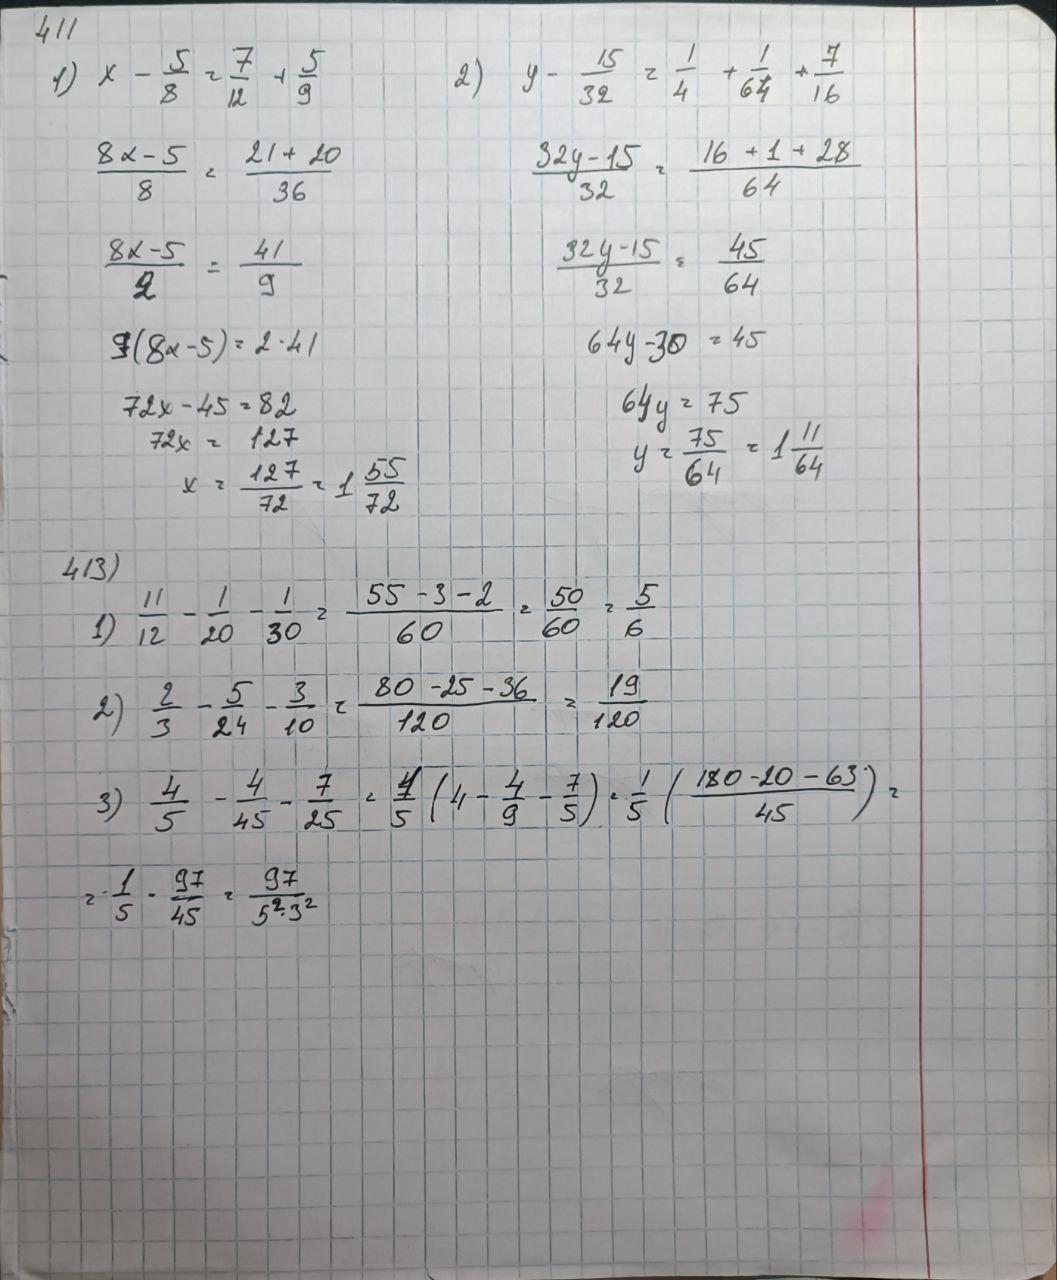 411
1) x - 5/8 = 7/12 + 5/9
(8x-5)/8 = (21+20)/36
(8x-5)/2 = 41/9
9(8x-5) = 2·41
72x - 45 = 82
72x = 127
x = 127/72 = 1 55/72
2) y - 15/32 = 1/4 + 1/64 + 7/16
(32y-15)/32 = (16+1+28)/64
(32y-15)/32 = 45/64
64y-30 = 45
64y = 75
y = 75/64 = 1 11/64
413)
1) 11/12 - 1/20 - 1/30 = (55-3-2)/60 = 50/60 = 5/6
2) 2/3 - 5/24 - 3/10 = (80-25-36)/120 = 19/120
3) 4/5 - 4/45 - 7/25 = 1/5 (4 - 4/9 - 7/5) = 1/5 ((180-20-63)/45) =
= 1/5 · 97/45 = 97/(5²·3²)